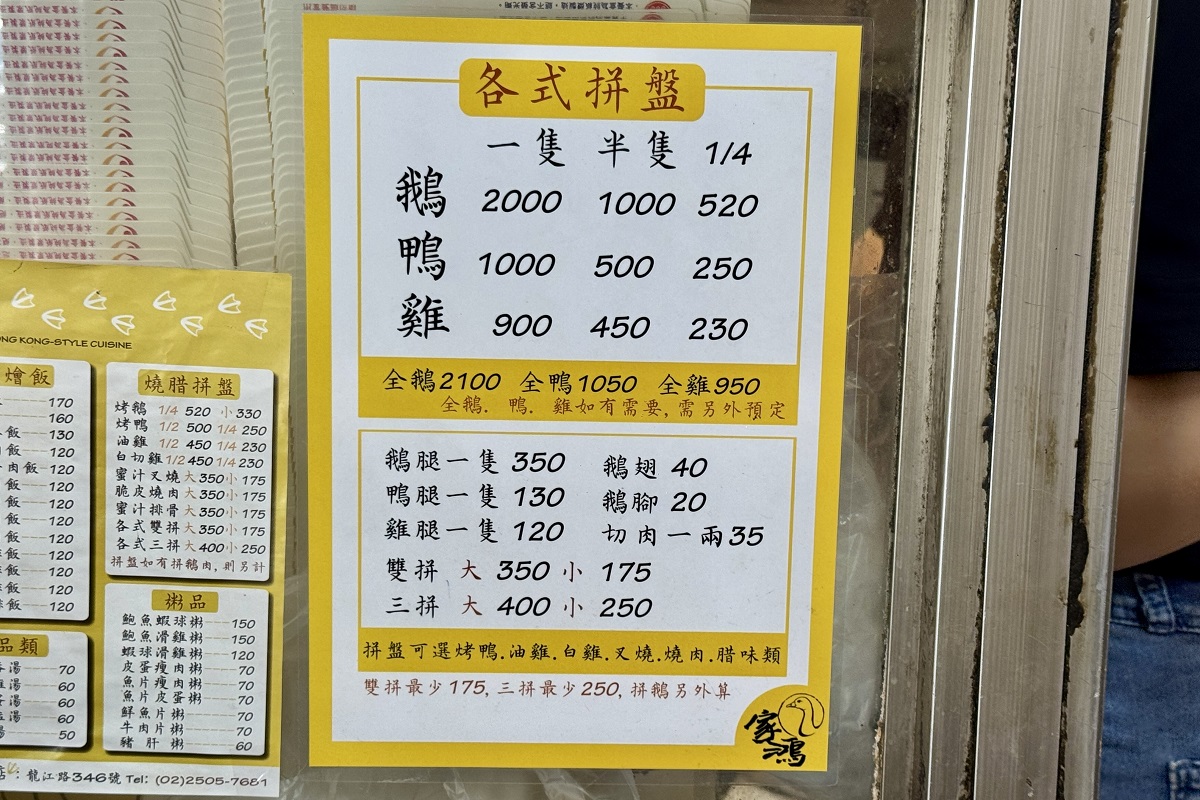 各式拼盤
一隻 半隻 1/4
鵝 2000 1000 520
鴨 1000 500 250
雞 900 450 230
全鵝2100 全鴨1050 全雞950
全鵝. 鴨. 雞如有需要,需另外預定
鵝腿一隻 350 鵝翅 40
鴨腿一隻 130 鵝腳 20
雞腿一隻 120 切肉一兩35
雙拼 大 350 小 175
三拼 大 400 小 250
拼盤可選烤鴨.油雞.白雞.叉燒.燒肉.腊味類
雙拼最少175,三拼最少250,拼鵝另外算
家鴻
ONG KONG-STYLE CUISINE
燴飯
170
160
飯 130
飯 120
肉飯 120
飯 120
飯 120
飯 120
飯 120
飯 120
飯 120
飯 120
飯 120
品類
湯 70
湯 60
湯 60
湯 60
湯 50
燒腊拼盤
烤鵝 1/4 520 小 330
烤鴨 1/2 500 1/4 250
油雞 1/2 450 1/4 230
白切雞 1/2 450 1/4 230
蜜汁叉燒 大350 小 175
脆皮燒肉 大350 小 175
蜜汁排骨 大350 小 175
各式雙拼 大350 小 175
各式三拼 大400 小 250
拼盤如有拼鵝肉,則另計
粥品
鮑魚蝦球粥 150
鮑魚滑雞粥 150
蝦球滑雞粥 120
皮蛋瘦肉粥 70
魚片瘦肉粥 70
魚片皮蛋粥 70
鮮魚片粥 70
牛肉片粥 70
豬肝粥 60
店:龍江路346號 Tel: (02)2505-7681